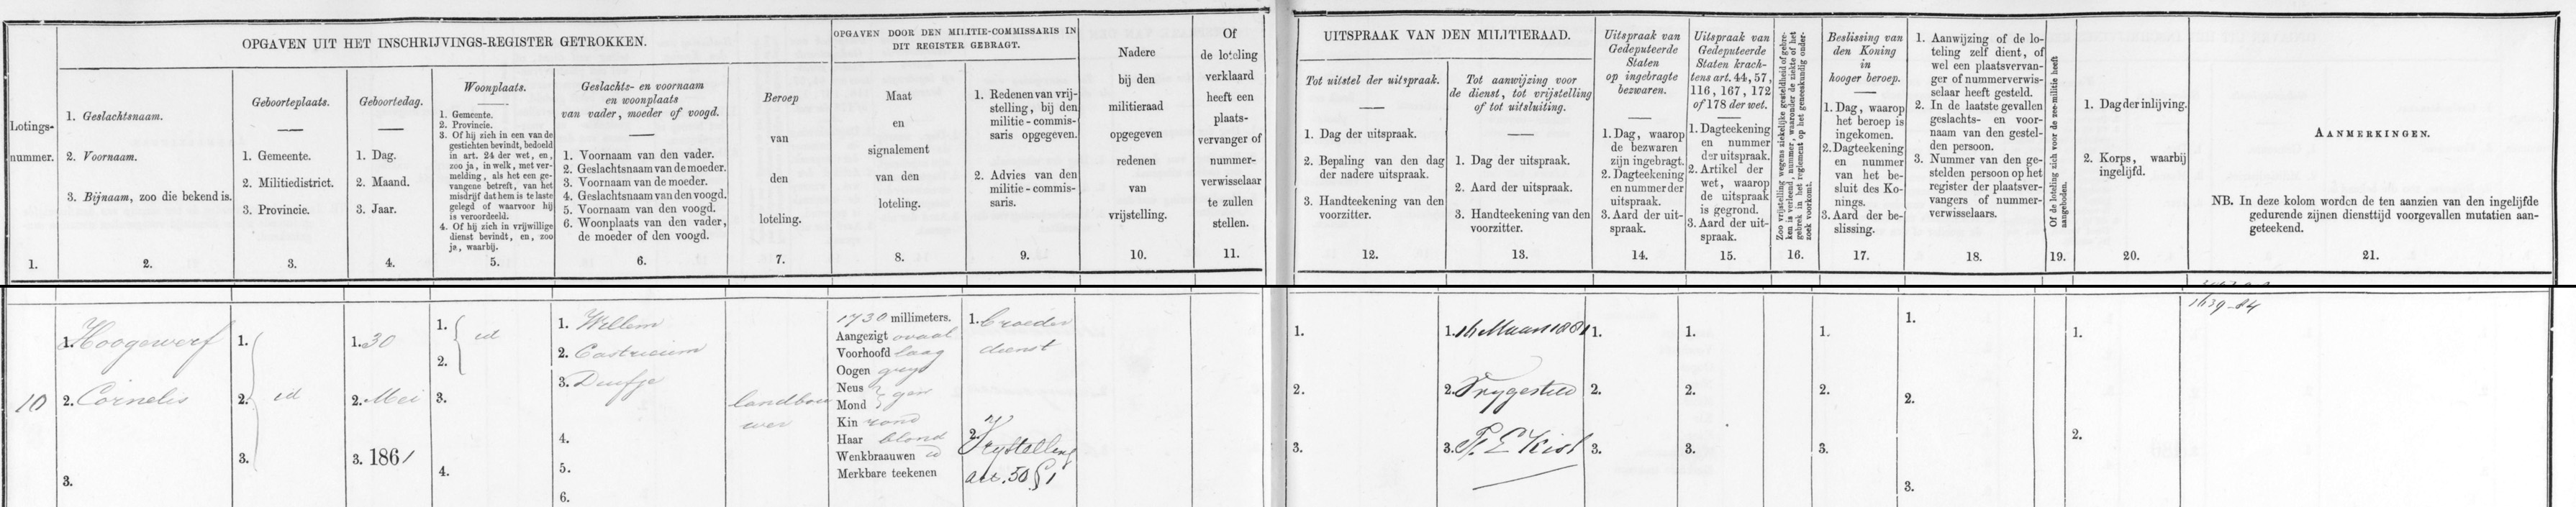 OPGAVEN UIT HET INSCHRIJVINGS-REGISTER GETROKKEN.
OPGAVEN DOOR DEN MILITIE-COMMISSARIS IN
DIT REGISTER GEBRAGT.
Lotings-
nummer.
1.
1. Geslachtsnaam.
2. Voornaam.
3. Bijnaam, zoo die bekend is.
2.
Geboorteplaats.
1. Gemeente.
2. Militiedistrict.
3. Provincie.
3.
Geboortedag.
1. Dag.
2. Maand.
3. Jaar.
4.
Woonplaats.
1. Gemeente.
2. Provincie.
3. Of hij zich in een van de
gestichten bevindt, bedoeld
in art. 24 der wet, en,
zoo ja, in welk, met ver-
melding, als het een ge-
vangene betreft, van het
misdrijf dat hem is te laste
gelegd of waarvoor hij
is veroordeeld.
4. Of hij zich in vrijwillige
dienst bevindt, en, zoo
ja, waarbij.
5.
Geslachts- en voornaam
en woonplaats
van vader, moeder of voogd.
1. Voornaam van den vader.
2. Geslachtsnaam van de moeder.
3. Voornaam van de moeder.
4. Geslachtsnaam van den voogd.
5. Voornaam van den voogd.
6. Woonplaats van den vader,
de moeder of den voogd.
6.
Beroep
van
den
loteling.
7.
Maat
en
signalement
van den
loteling.
8.
1. Redenen van vrij-
stelling, bij den
militie-commis-
saris opgegeven.
2. Advies van den
militie-commis-
saris.
9.
Nadere
bij den
militieraad
opgegeven
redenen
van
vrijstelling.
10.
Of
de loteling
verklaard
heeft een
plaats-
vervanger of
nummer-
verwisselaar
te zullen
stellen.
11.
UITSPRAAK VAN DEN MILITIERAAD.
Tot uitstel der uitspraak.
1. Dag der uitspraak.
2. Bepaling van den dag
der nadere uitspraak.
3. Handteekening van den
voorzitter.
12.
Tot aanwijzing voor
de dienst, tot vrijstelling
of tot uitsluiting.
1. Dag der uitspraak.
2. Aard der uitspraak.
3. Handteekening van den
voorzitter.
13.
Uitspraak van
Gedeputeerde
Staten
op ingebragte
bezwaren.
1. Dag, waarop
de bezwaren
zijn ingebragt.
2. Dagteekening
en nummer der
uitspraak.
3. Aard der uit-
spraak.
14.
Uitspraak van
Gedeputeerde
Staten krach-
tens art. 44, 57,
116, 167, 172
of 178 der wet.
1. Dagteekening
en nummer
der uitspraak.
2. Artikel der
wet, waarop
de uitspraak
is gegrond.
3. Aard der uit-
spraak.
15.
Zoo vrijstelling wegens ziekelijke gesteldheid of gebre-
ken is verleend, nummer, waaronder de ziekte of het
gebrek in het reglement op het geneeskundig onder-
zoek voorkomt.
16.
Beslissing van
den Koning
in
hooger beroep.
1. Dag, waarop
het beroep is
ingekomen.
2. Dagteekening
en nummer
van het be-
sluit des Ko-
nings.
3. Aard der be-
slissing.
17.
1. Aanwijzing of de lo-
teling zelf dient, of
wel een plaatsvervan-
ger of nummerverwis-
selaar heeft gesteld.
2. In de laatste gevallen
geslachts- en voor-
naam van den gestel-
den persoon.
3. Nummer van den ge-
stelden persoon op het
register der plaatsver-
vangers of nummer-
verwisselaars.
18.
Of de loteling zich voor de zee-militie heeft
aangeboden.
19.
1. Dag der inlijving.
2. Korps, waarbij
ingelijfd.
20.
AANMERKINGEN.
NB. In deze kolom worden de ten aanzien van den ingelijfde
gedurende zijnen diensttijd voorgevallen mutatien aan-
geteekend.
21.
10
1. Hoogewerf
2. Cornelis
3.
1.
2. id
3.
1. 30
2. Mei
3. 1861
1. id
2.
3.
4.
1. Willem
2. Castricum
3. Duifje
4.
5.
6.
landbou
wer
1730 millimeters.
Aangezigt ovaal
Voorhoofd laag
Oogen grys
Neus
Mond gew
Kin rond
Haar blond
Wenkbraauwen id
Merkbare teekenen
1. broeder
dienst
2. Vrystelling
art. 50 § 1
1.
2.
3.
1. 16 Maart 1881
2. Vrygesteld
3. P. E. Kist
1.
2.
3.
1.
2.
3.
1.
2.
3.
1.
2.
3.
1.
2.
1639-84